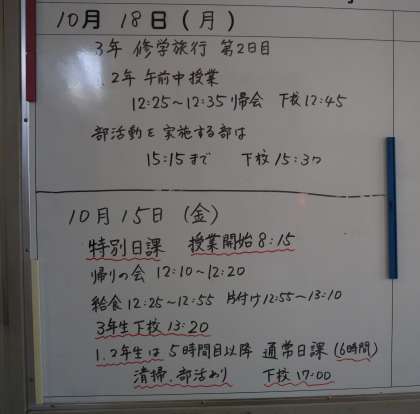 10月 18日(月)
3年 修学旅行 第2日目
1.2年 午前中授業
12:25〜12:35 帰会 下校12:45
部活動を実施する部は
15:15まで 下校 15:30
10月 15日 (金)
特別日課 授業開始 8:15
帰りの会 12:10〜12:20
給食 12:25〜12:55 片付け 12:55〜13:10
3年生下校 13:20
1.2年生は 5時間目以降 通常日課 (6時間)
清掃、部活あり 下校 17:00